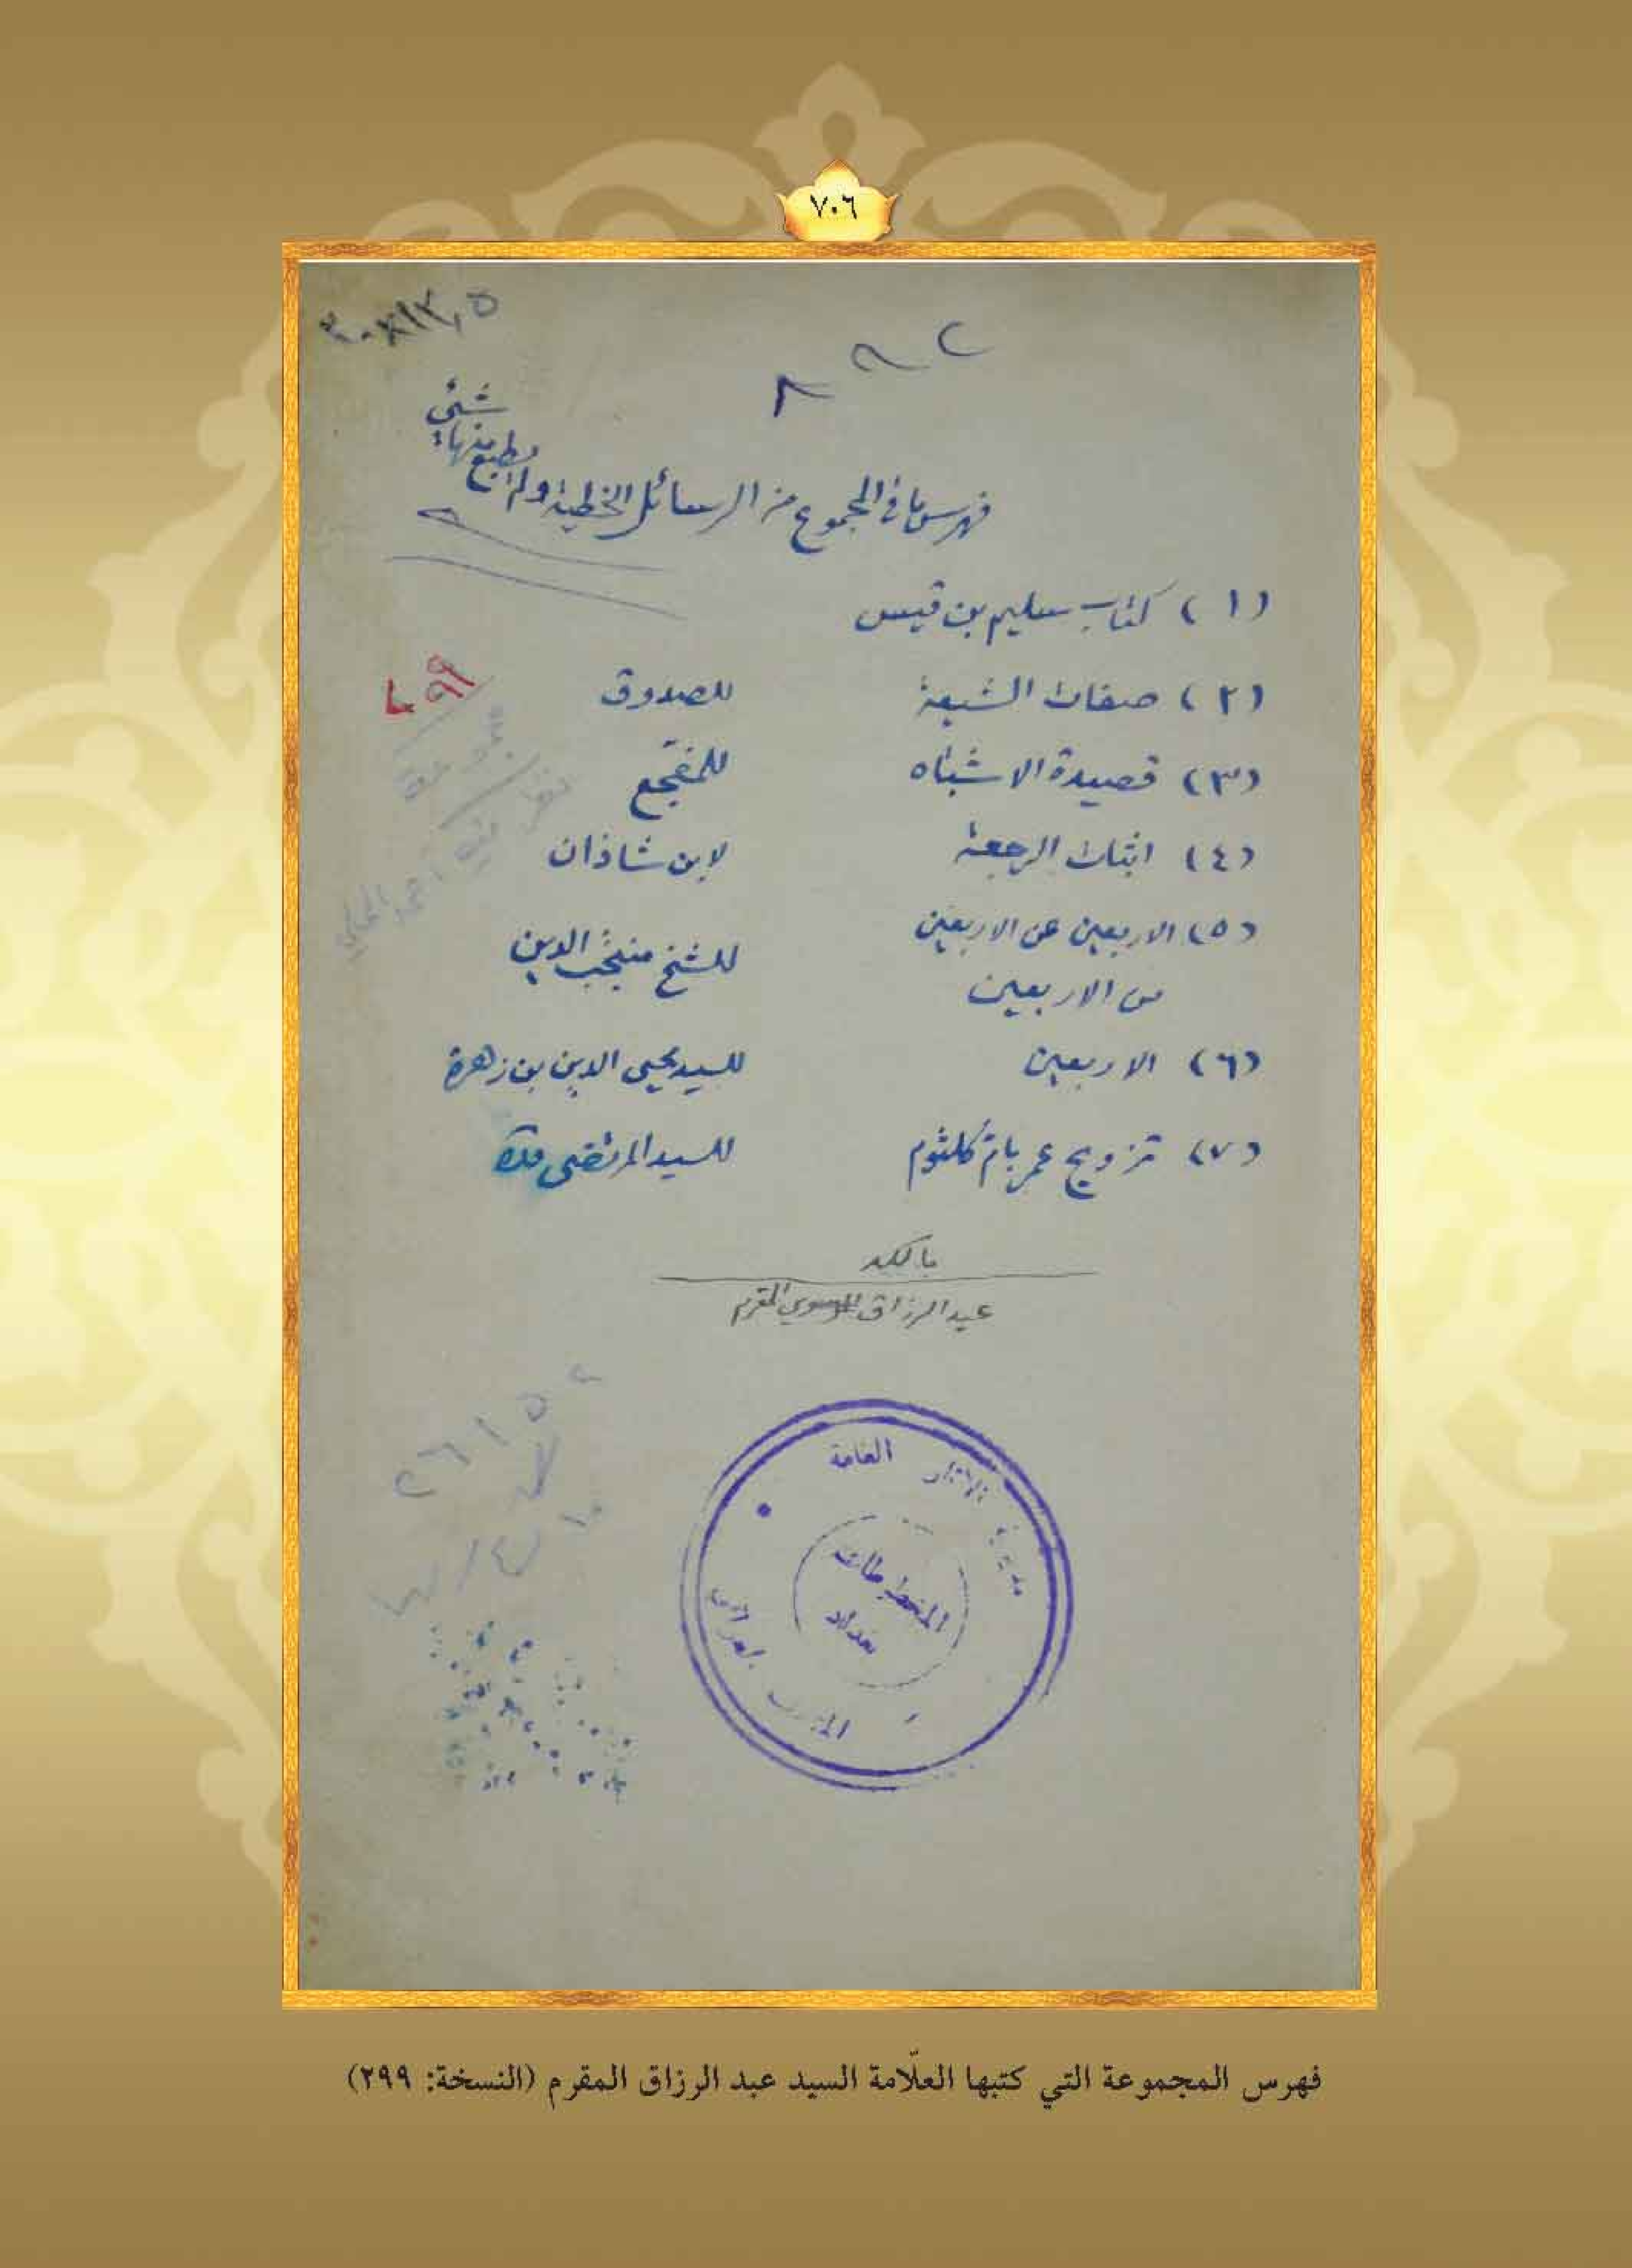 ٧٠٦
٢٠×١٣,٥
فهرس ما في المجموع من الرسائل الخطية ولم يطبع منها شئ
(١) كتاب سليم بن قيس
(٢) صفات الشيعة للصدوق
٢٩٩
(٣) قصيدة الاشباه للمفجع
(٤) اثبات الرجعة لابن شاذان
(٥) الاربعين عن الاربعين
من الاربعين للشيخ منتجب الدين
(٦) الاربعين للسيد محيى الدين بن زهرة
(٧) تزويج عمر بام كلثوم للسيد المرتضى قده
مالكه
عبد الرزاق الموسوي المقرم
العامة
المخطوطات
بغداد
فهرس المجموعة التي كتبها العلّامة السيد عبد الرزاق المقرم (النسخة: ٢٩٩)